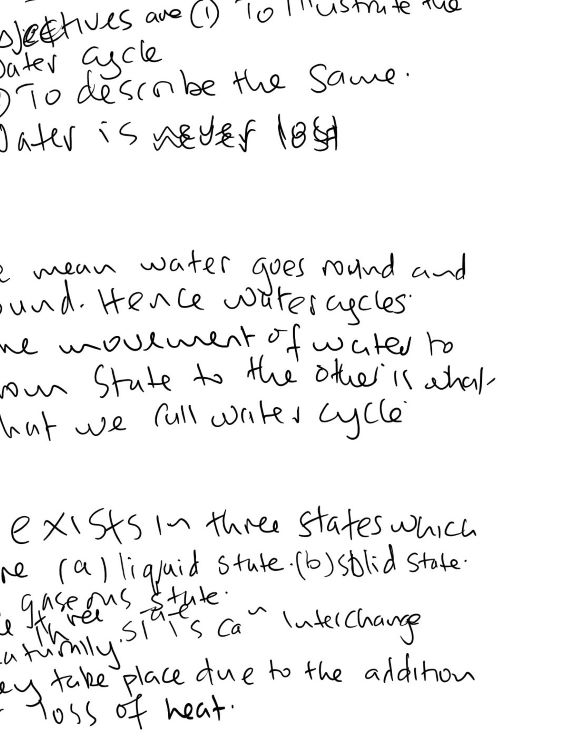 are (1) To Illustrate the
cycle
To describe the Same.
is never lost
mean water goes round and
Hence water cycles.
movement of water to
State to the other is what
we call water cycle
exists in three states which
(a) liquid state. (b) solid state.
gaseous state.
three states can Interchange
take place due to the addition
loss of heat.